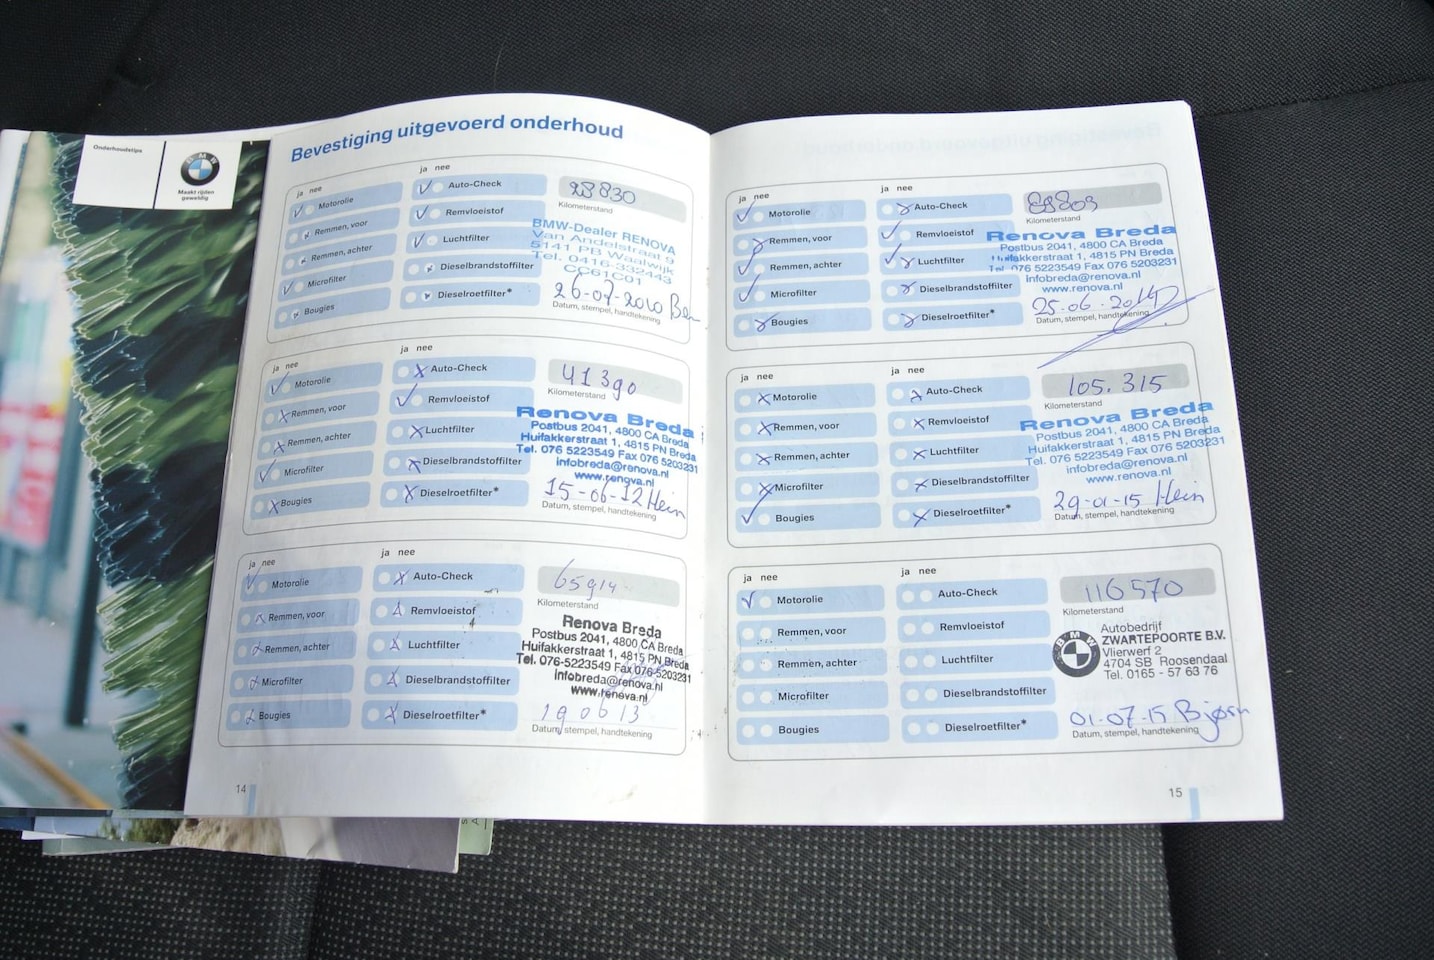 Onderhoudstips
BMW
Maakt rijden
geweldig
Bevestiging uitgevoerd onderhoud
ja nee
Motorolie
Remmen, voor
Remmen, achter
Microfilter
Bougies
ja nee
Auto-Check
Remvloeistof
Luchtfilter
Dieselbrandstoffilter
Dieselroetfilter*
28830
Kilometerstand
BMW-Dealer RENOVA
Van Andelstraat 9
5141 PB Waalwijk
Tel. 0416-332443
CC61C01
26-07-2010 Ben
Datum, stempel, handtekening
ja nee
Motorolie
Remmen, voor
Remmen, achter
Microfilter
Bougies
ja nee
Auto-Check
Remvloeistof
Luchtfilter
Dieselbrandstoffilter
Dieselroetfilter*
41390
Kilometerstand
Renova Breda
Postbus 2041, 4800 CA Breda
Huifakkerstraat 1, 4815 PN Breda
Tel. 076 5223549 Fax 076 5203231
infobreda@renova.nl
www.renova.nl
15-06-12 Hein
Datum, stempel, handtekening
ja nee
Motorolie
Remmen, voor
Remmen, achter
Microfilter
Bougies
ja nee
Auto-Check
Remvloeistof
Luchtfilter
Dieselbrandstoffilter
Dieselroetfilter*
65914
Kilometerstand
Renova Breda
Postbus 2041, 4800 CA Breda
Huifakkerstraat 1, 4815 PN Breda
Tel. 076-5223549 Fax 076-5203231
infobreda@renova.nl
www.renova.nl
19 06 13
Datum, stempel, handtekening
14
ja nee
Motorolie
Remmen, voor
Remmen, achter
Microfilter
Bougies
ja nee
Auto-Check
Remvloeistof
Luchtfilter
Dieselbrandstoffilter
Dieselroetfilter*
Kilometerstand
Renova Breda
Postbus 2041, 4800 CA Breda
Huifakkerstraat 1, 4815 PN Breda
Tel. 076 5223549 Fax 076 5203231
infobreda@renova.nl
www.renova.nl
25.06.2014
Datum, stempel, handtekening
ja nee
Motorolie
Remmen, voor
Remmen, achter
Microfilter
Bougies
ja nee
Auto-Check
Remvloeistof
Luchtfilter
Dieselbrandstoffilter
Dieselroetfilter*
105.315
Kilometerstand
Renova Breda
Postbus 2041, 4800 CA Breda
Huifakkerstraat 1, 4815 PN Breda
Tel. 076 5223549 Fax 076 5203231
infobreda@renova.nl
www.renova.nl
29-01-15 Hein
Datum, stempel, handtekening
ja nee
Motorolie
Remmen, voor
Remmen, achter
Microfilter
Bougies
ja nee
Auto-Check
Remvloeistof
Luchtfilter
Dieselbrandstoffilter
Dieselroetfilter*
116570
Kilometerstand
BMW
Autobedrijf
ZWARTEPOORTE B.V.
Vlierwerf 2
4704 SB Roosendaal
Tel. 0165 - 57 63 76
01-07-15 Bjørn
Datum, stempel, handtekening
15